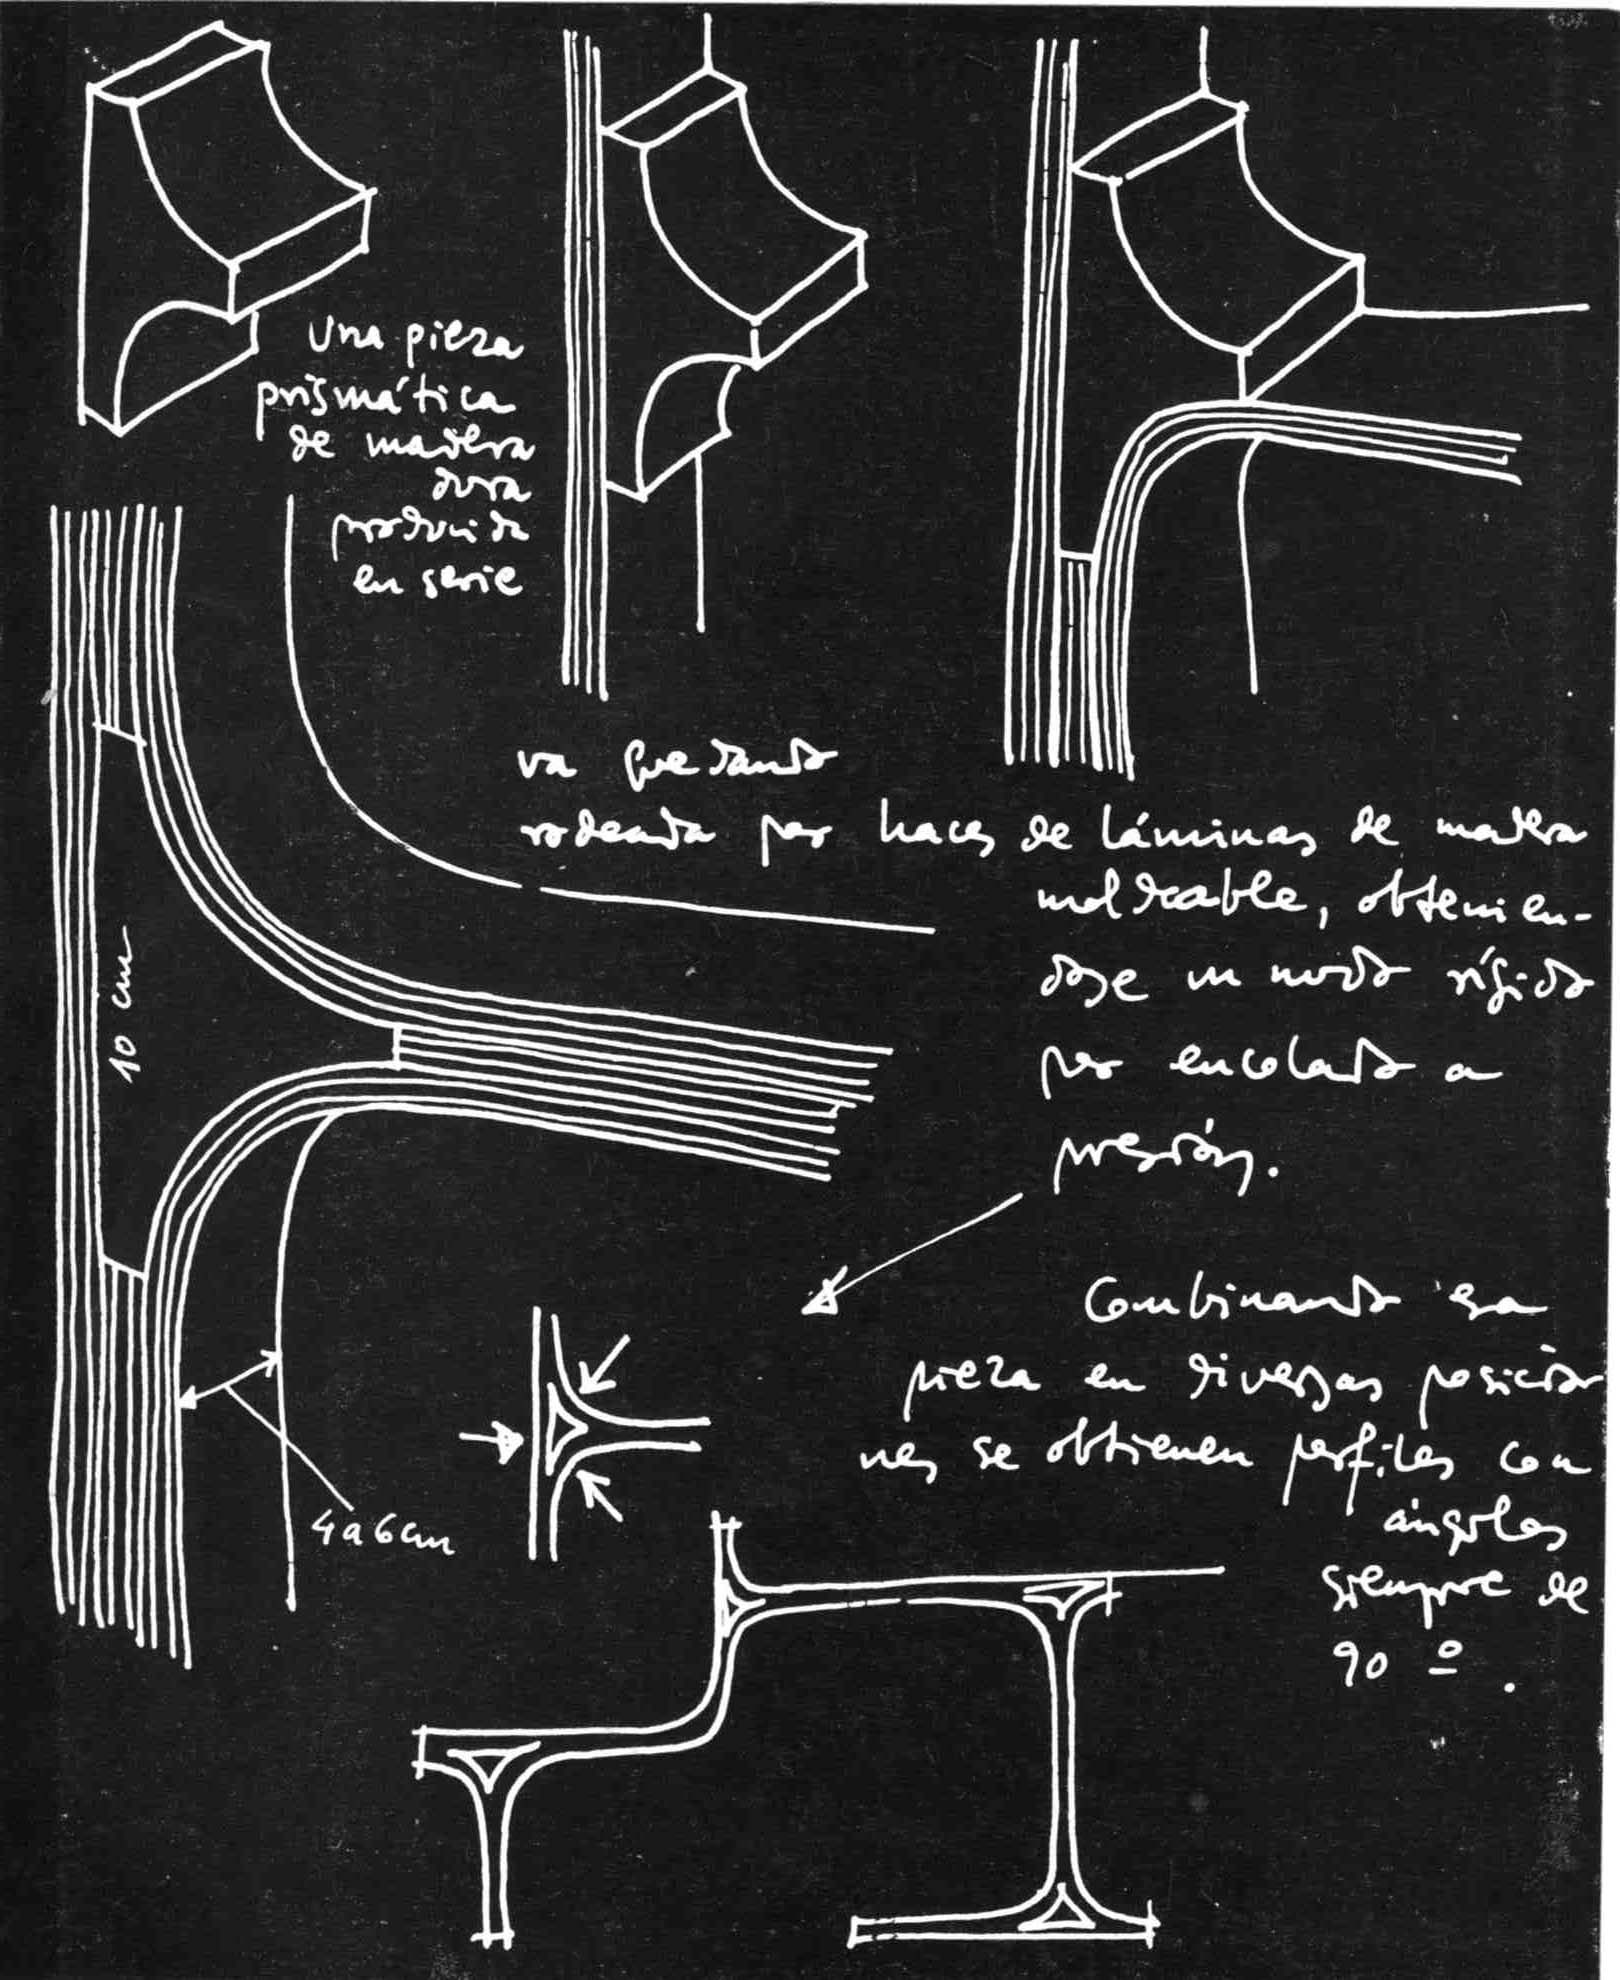 Una pieza
prismática
de madera
dura
producida
en serie
va quedando
rodeada por haces de láminas de madera
moldeable, obtenien-
dose un nudo rígido
por encolado a
presión.
10 cm
4 a 6 cm
Combinando esa
pieza en diversas posicio-
nes se obtienen perfiles con
ángulos
siempre de
90 º.